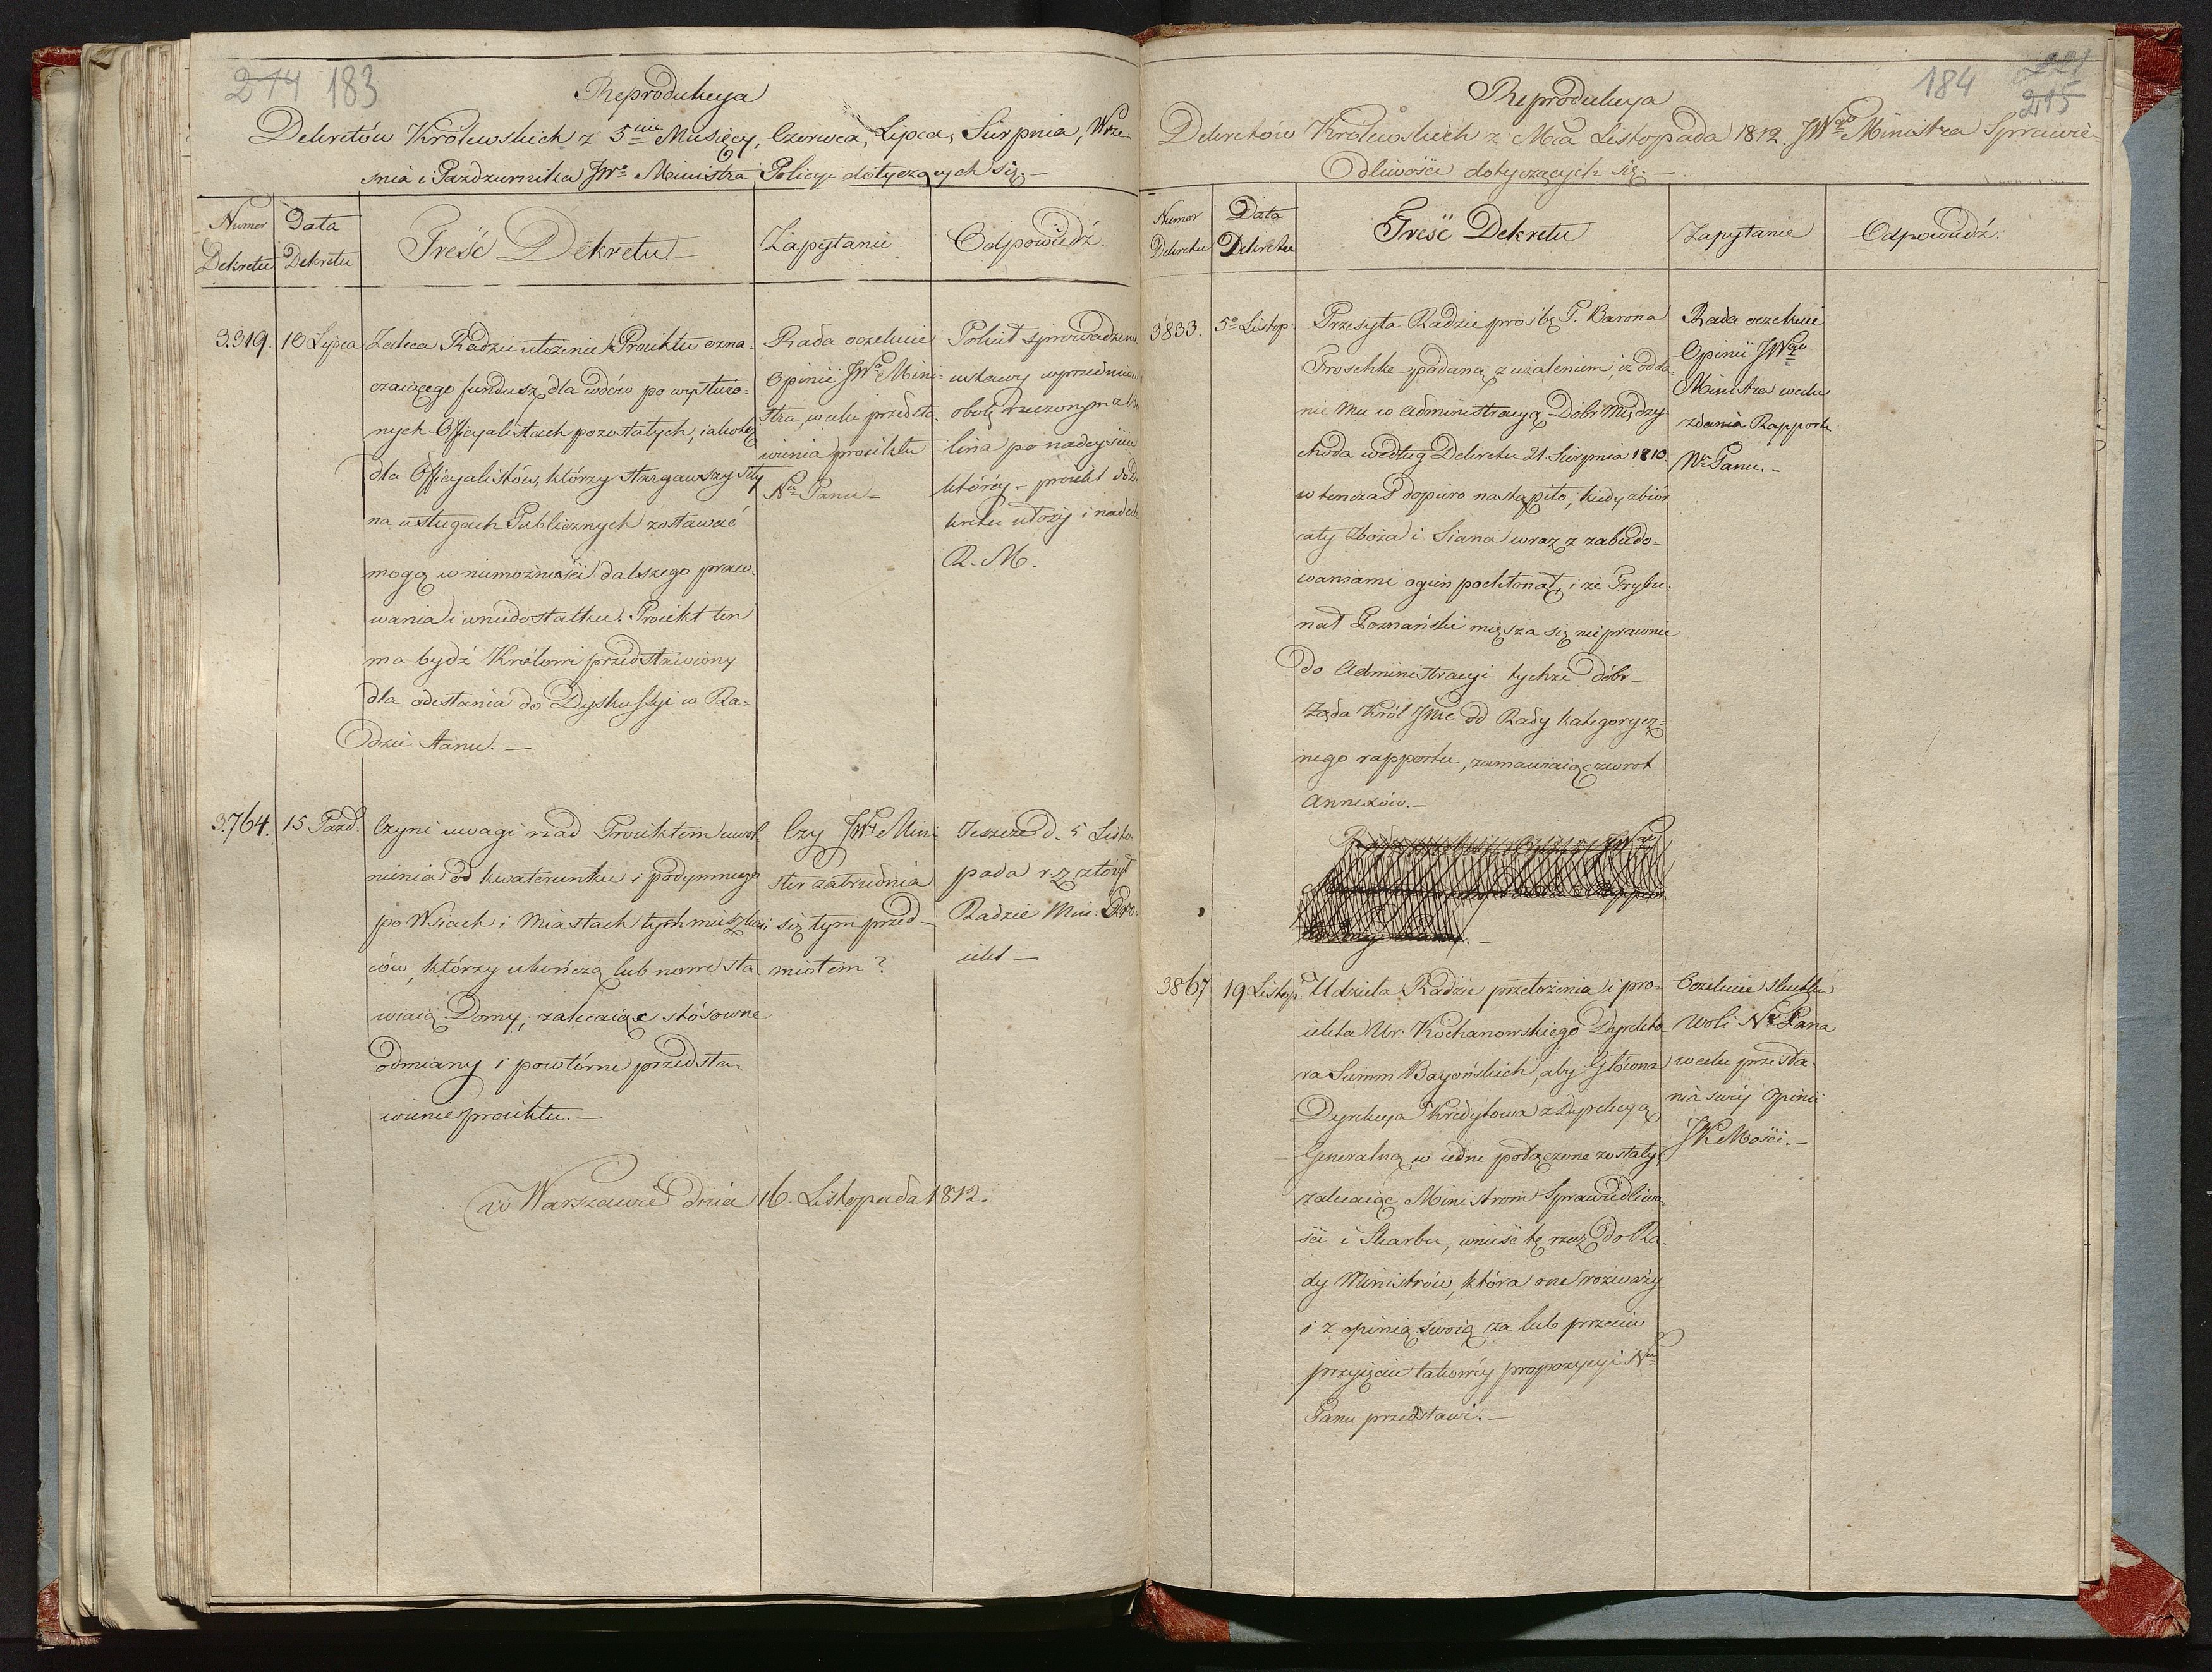 214 183
Reprodukcya
Dekretów Królewskich z 5ciu Miesięcy, Czerwca, Lipca, Sierpnia, Wrze-
śnia i Pazdziernika JWo Ministra Policyi dotyczących się.-
Numer Dekretu
Data Dekretu
Treść Dekretu
Zapytanie
Odpowiedź.
3.319.
10 Lipca
Zaleca Radzie ułożenie Proiektu ozna-
czaiącego fundusz dla wdów po wysłużo-
nych Officyalistach pozostałych, iakoteż
dla Officyalistów, którzy stargawszy siły
na usługach Publicznych zostawać
mogą w niemożności dalszego praco-
wania i w niedostatku. Proiekt ten
ma bydź Królowi przedstawiony
dla odesłania do Dyskussyi w Ra-
dzie Stanu.-
Rada oczekuie
Opinii JWo Mini-
stra, w celu przedsta-
wienia proiektu
Nu Panu-
Polecił sprowadzenie
ustawy w przedmio
po nadeyściu
którey - proiekt do De
kretu ułoży i nadeśle
R. M.
3.764.
15 Pazd.
Czyni uwagi nad Proiektem uwol-
nienia od kwaterunku i podymnego
po Wsiach i Miastach tych mieszkań-
ców, którzy ukończą lub nowe sta
wiaią Domy, zalecaiąc stósowne
odmiany i powtórne przedsta-
wienie proiektu.-
Czy JWy Mini-
ster zatrudnia
się tym przed-
miotem?
Jeszcze d. 5 Listo-
pada r. z. złożył
Radzie Min: Pro-
iekt -
w Warszawie dnia 16. Listopada 1812.
184 221
215
Reprodukcya
Dekretów Królewskich z Mca Listopada 1812. JWgo Ministra Sprawie-
dliwości dotyczących się.-
Numer Dekretu
Data Dekretu
Treść Dekretu
Zapytanie
Odpowiedź.
3833.
5o Listop.
Przesyła Radzie prośbę P. Barona
Troschke podaną z użaleniem, iż odda-
nie Mu w Administracyą Dóbr Między-
choda według Dekretu 21. Sierpnia 1810.
w tenczas dopiero nastąpiło, kiedy zbiór
cały Zboża i Siana wraz z zabudo-
waniami ogień pochłonął, i że Trybu-
nał Poznański mięsza się nieprawnie
do Administracyi tychże dóbr-
Żąda Król JMć od Rady kategorycz-
nego rapportu, zamawiaiąc zwrot
Annexów.-
Rada oczekuie
Opinii JWgo
Ministra w celu
zdania Rapportu
Nu Panu.-
3867
19 Listop.
Udziela Radzie przełożenia i pro-
iekta Ur. Kochanowskiego Dyrekto
ra Summ Bayońskich, aby Główna
Dyrekcya Kredytowa z Dyrekcyą
Generalną w iedne połączone zostały,
zalecaiąc Ministrom Sprawiedliwo
ści i Skarbu, wnieść tę rzecz do Ra-
dy Ministrów, która one rozważy
i z opinią swoią za lub przeciw
przyięciu takowéy propozycyi Nu
Panu przedstawi.-
Oczekuie skutku
woli No Pana
w celu przesła-
nia swéy Opinii
JKMości.-